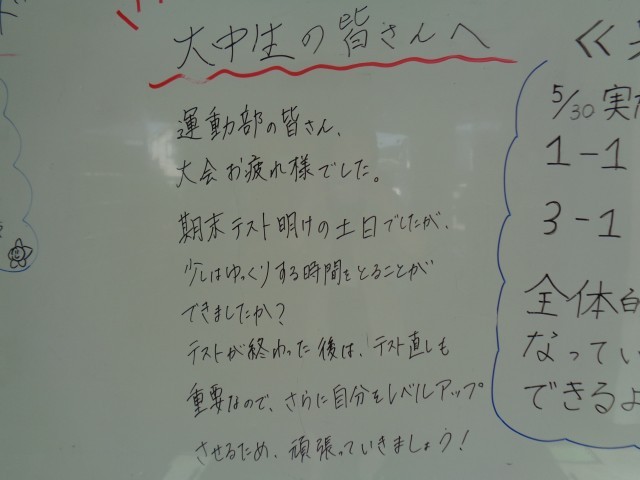 大中生の皆さんへ
運動部の皆さん、
大会お疲れ様でした。
期末テスト明けの土日でしたが、
少しはゆっくりする時間をとることが
できましたか？
テストが終わった後は、テスト直しも
重要なので、さらに自分をレベルアップ
させるため、頑張っていきましょう！
≪
5/30 実
1-1
3-1
全体
なってい
できるよ